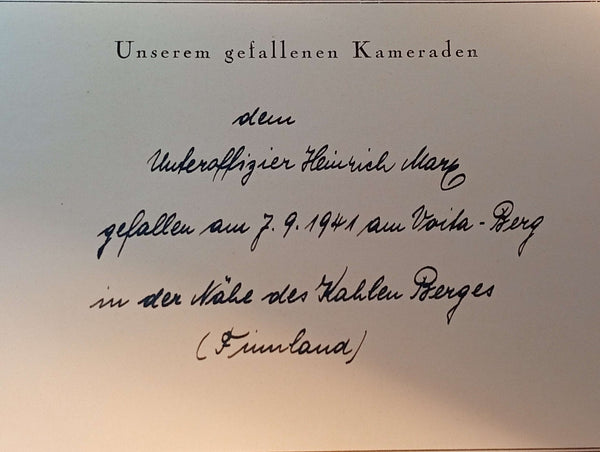 Unserem gefallenen Kameraden
dem
Unteroffizier Heinrich Marx
gefallen am 7.9.1941 am Voita-Berg
in der Nähe des Kahlen Berges
(Finnland)